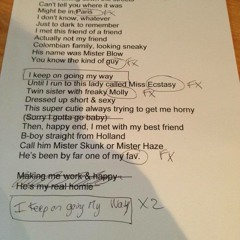 Can't tell you where it was
Might be in Paris FX
I don't know, whatever
Just to dark to remember
I met this friend of a friend
Actually not my friend
Colombian family, looking sneaky
His name was Mister Blow
You know the kind of guy FX
I keep on going my way
Until I run to this lady called Miss Ecstasy FX
Twin sister with freaky Molly FX
Dressed up short & sexy
This super cutie always trying to get me horny
(Sorry I gotta go baby)
Then, happy end, I met with my best friend
B-boy straight from Holland
Call him Mister Skunk or Mister Haze
He's been by far one of my fav. FX
Making me work & happy
He's my real home
I keep on going My Way X2